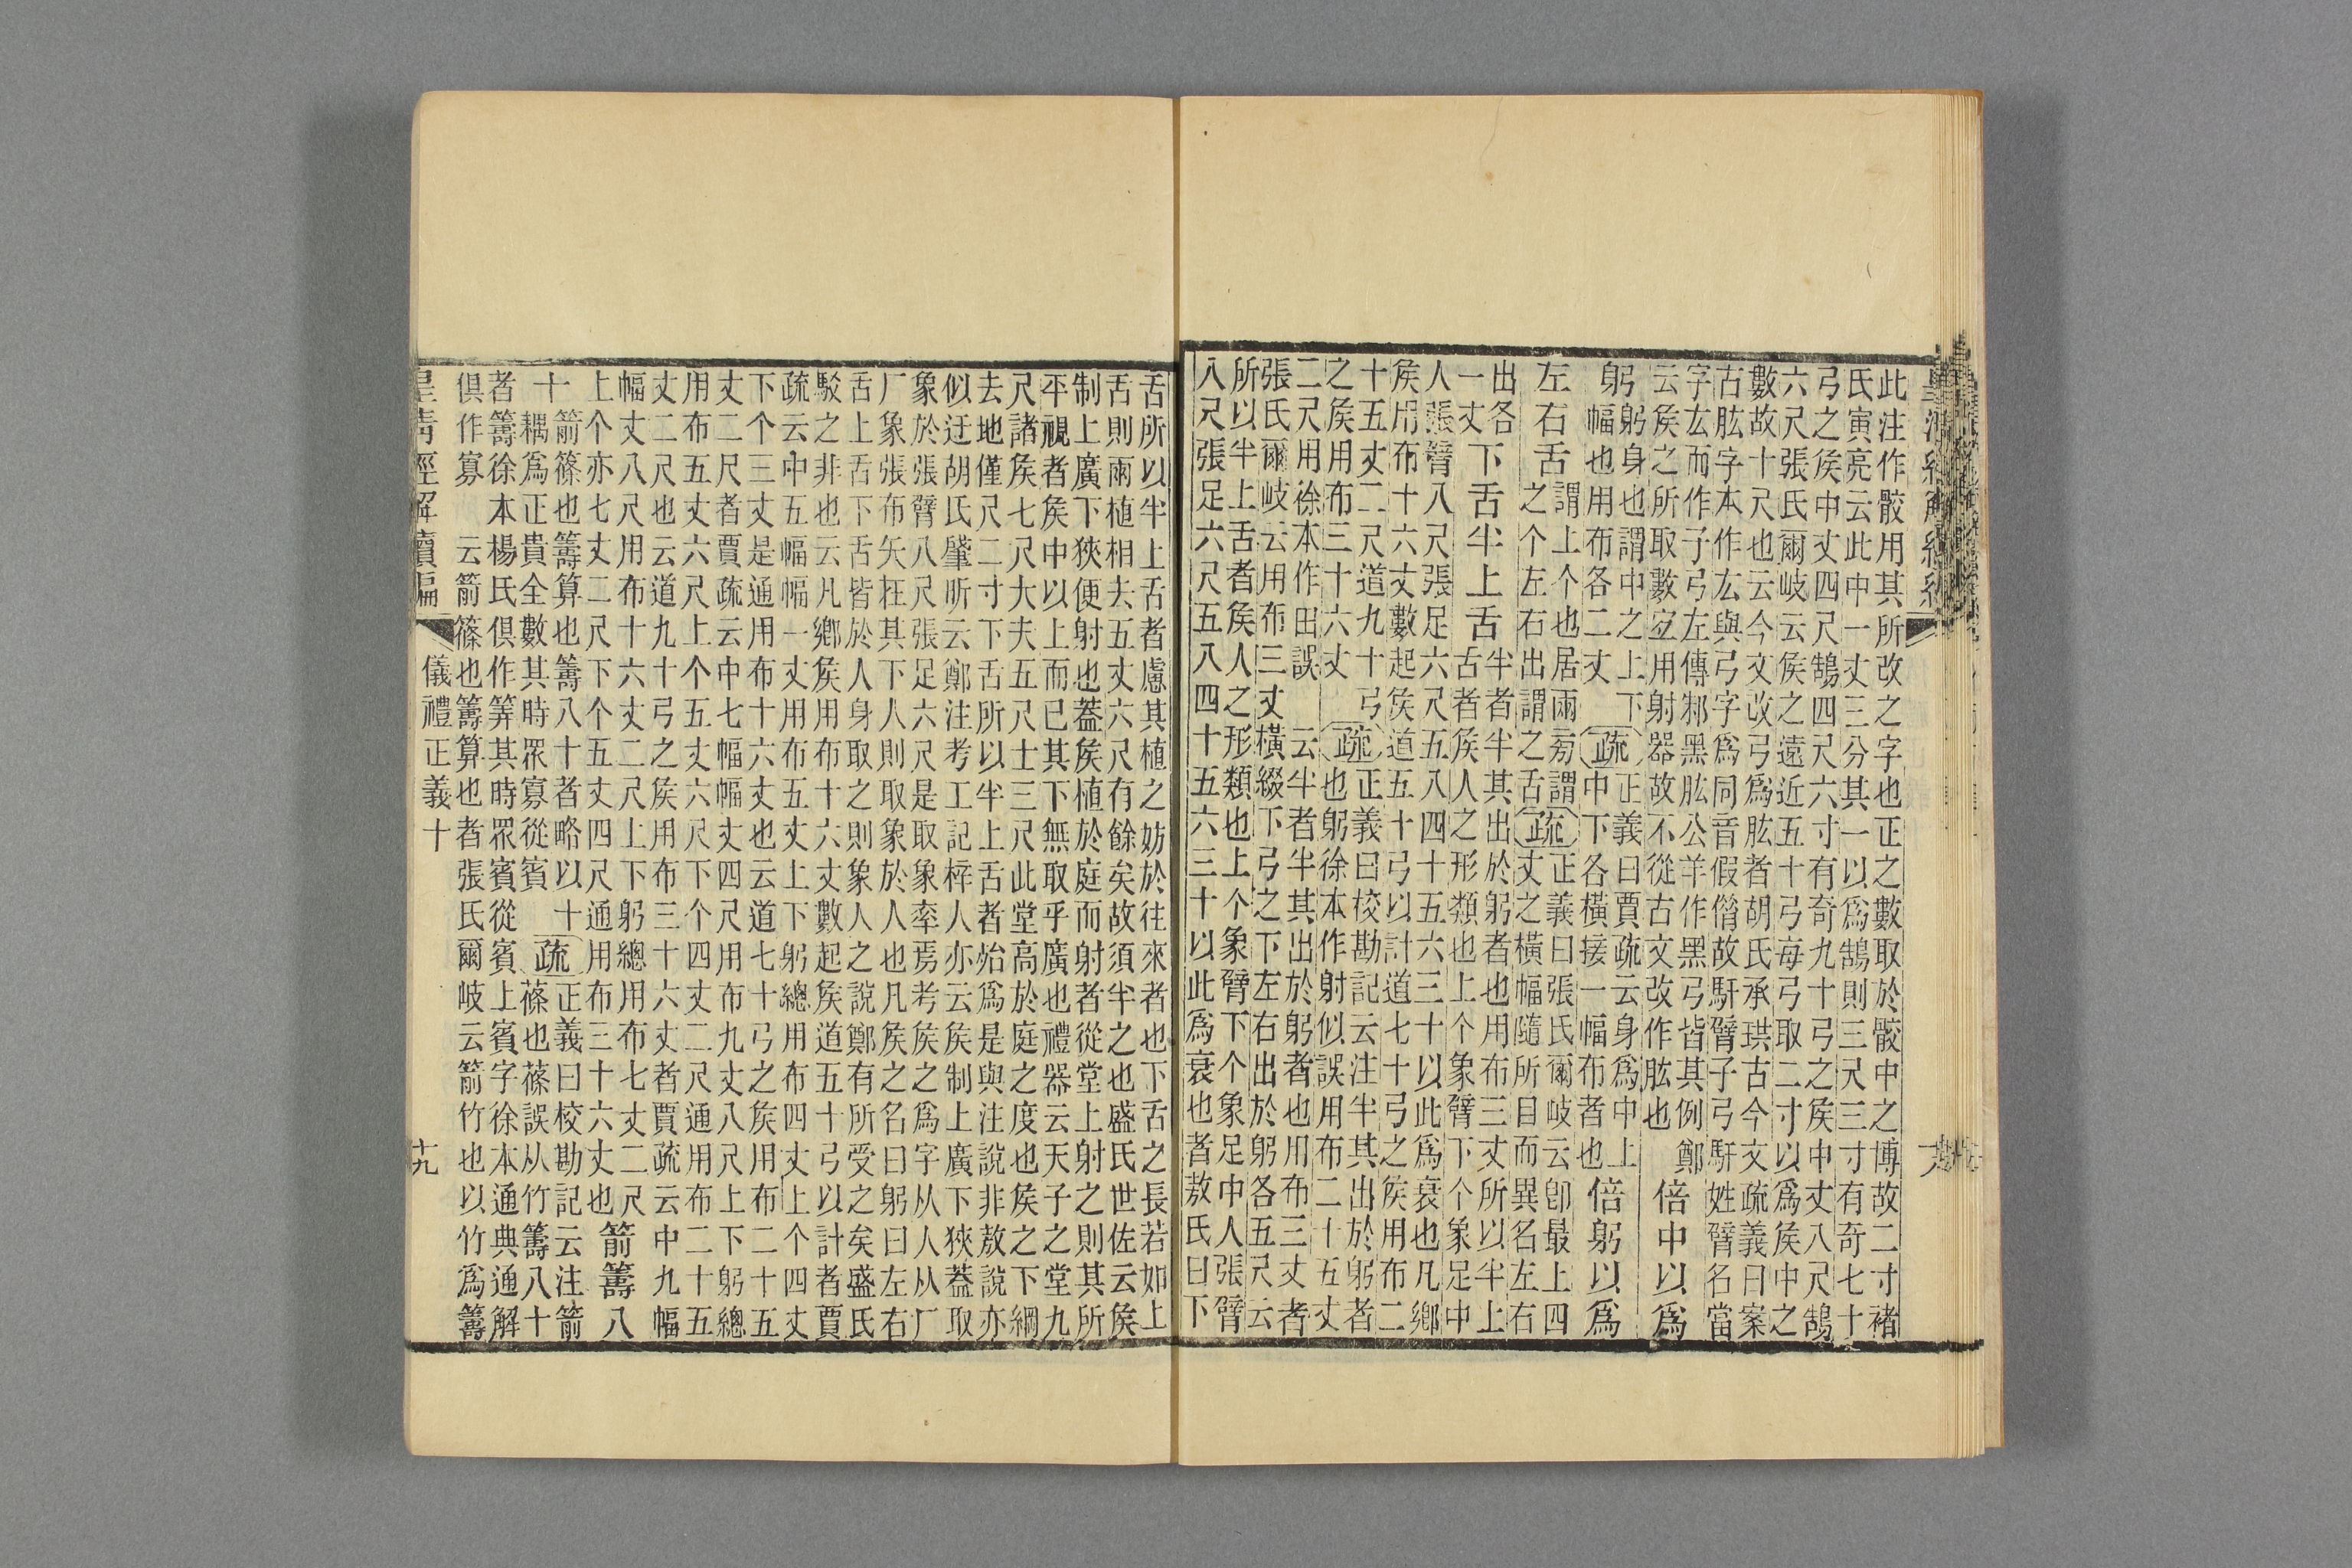 皇清經解續編
此注作骹用其所改之字也正之數取於骹中之博故二寸褚
氏寅亮云此中一丈三分其一以爲鵠則三尺三寸有奇七十
弓之矦中丈四尺鵠四尺六寸有奇九十弓之矦中丈八尺鵠
六尺張氏爾岐云矦之遠近五十弓每弓取二寸以爲矦中之
數故十尺也云今文改弓爲肱者胡氏承珙古今文疏義曰案
古肱字本作厷與弓字爲同音假偕故馯臂子弓馯姓臂名當
字厷而作子弓左傳邾黑肱公羊作黑弓皆其例鄭
云矦之所取數宐用射器故不從古文改作肱也
倍中以爲
躬
躬身也謂中之上下
幅也用布各二丈
疏
正義曰賈疏云身爲中上
中下各橫接一幅布者也
倍躬以爲
左右舌
謂上个也居兩旁謂
之个左右出謂之舌
疏
正義曰張氏爾岐云卽最上四
丈之橫幅隨所目而異名左右
出各
一丈
下舌半上舌
半者半其出於躬者也用布三丈所以半上
古者矦人之形類也上个象臂下个象足中
人張臂八尺張足六尺五八四十五六三十以此爲衰也凡鄉
矦用布十六丈數起矦道五十弓以計道七十弓之矦用布二
十五丈二尺道九十弓
之矦用布三十六丈
疏
正義曰校勘記云注半其出於躬者
也躬徐本作射似誤用布二十五丈
二尺用徐本作田誤云半者半其出於躬者也用布三丈者
張氏爾岐云用布三丈橫綴下弓之下左右出於躬各五尺云
所以半上舌者矦人之形類也上个象臂下个象足中人張臂
八尺張足六尺五八四十五六三十以此爲衰也者敖氏曰下
舌所以半上舌者慮其植之妨於往來者也下舌之長若如上
舌則兩植相去五丈六尺有餘矣故須半之也盛氏世佐云矦
制上廣下狹便射也葢矦植於庭而射者從堂上射之則其所
平視者矦中以上而已其下無取乎廣也禮器云天子之堂九
尺諸矦七尺大夫五尺士三尺此堂高於庭之度也矦之下綱
去地僅尺二寸下舌所以半上舌者始爲是與注說非敖說亦
似迂胡氏肇昕云鄭注考工記梓人亦云矦制上廣下狹葢取
象於張臂八尺張足六尺是取象牽焉考矦之爲字从人从厂
厂象張布矢在其下人則取象於人也凡矦之名曰躬曰左右
舌上舌下舌皆於人身取之則象人之說鄭有所受之矣盛氏
駁之非也云凡鄉矦用布十六丈數起矦道五十弓以計者賈
疏云中五幅幅一丈用布五丈上下躬總用布四丈上个四丈
下个三丈是通用布十六丈也云道七十弓之矦用布二十五
丈二尺者賈疏云中七幅幅丈四尺用布九丈八尺上下躬總
用布五丈六尺上个五丈六尺下个四丈二尺通用布二十五
丈二尺也云道九十弓之矦用布三十六丈者賈疏云中九幅
幅丈八尺用布十六丈二尺上下躬總用布七丈二尺
上个亦七丈二尺下个五丈四尺通用布三十六丈也
箭籌八
十
箭篠也籌算也籌八十者略以十
耦爲正貴全數其時眾寡從賓
疏
正義曰校勘記云注箭
篠也篠誤从竹籌八十
者籌徐本楊氏俱作筭其時眾賓從賓上賓字徐本通典通解
俱作寡云箭篠也籌算也者張氏爾岐云箭竹也以竹爲籌
皇清經解續編
儀禮正義十
十九